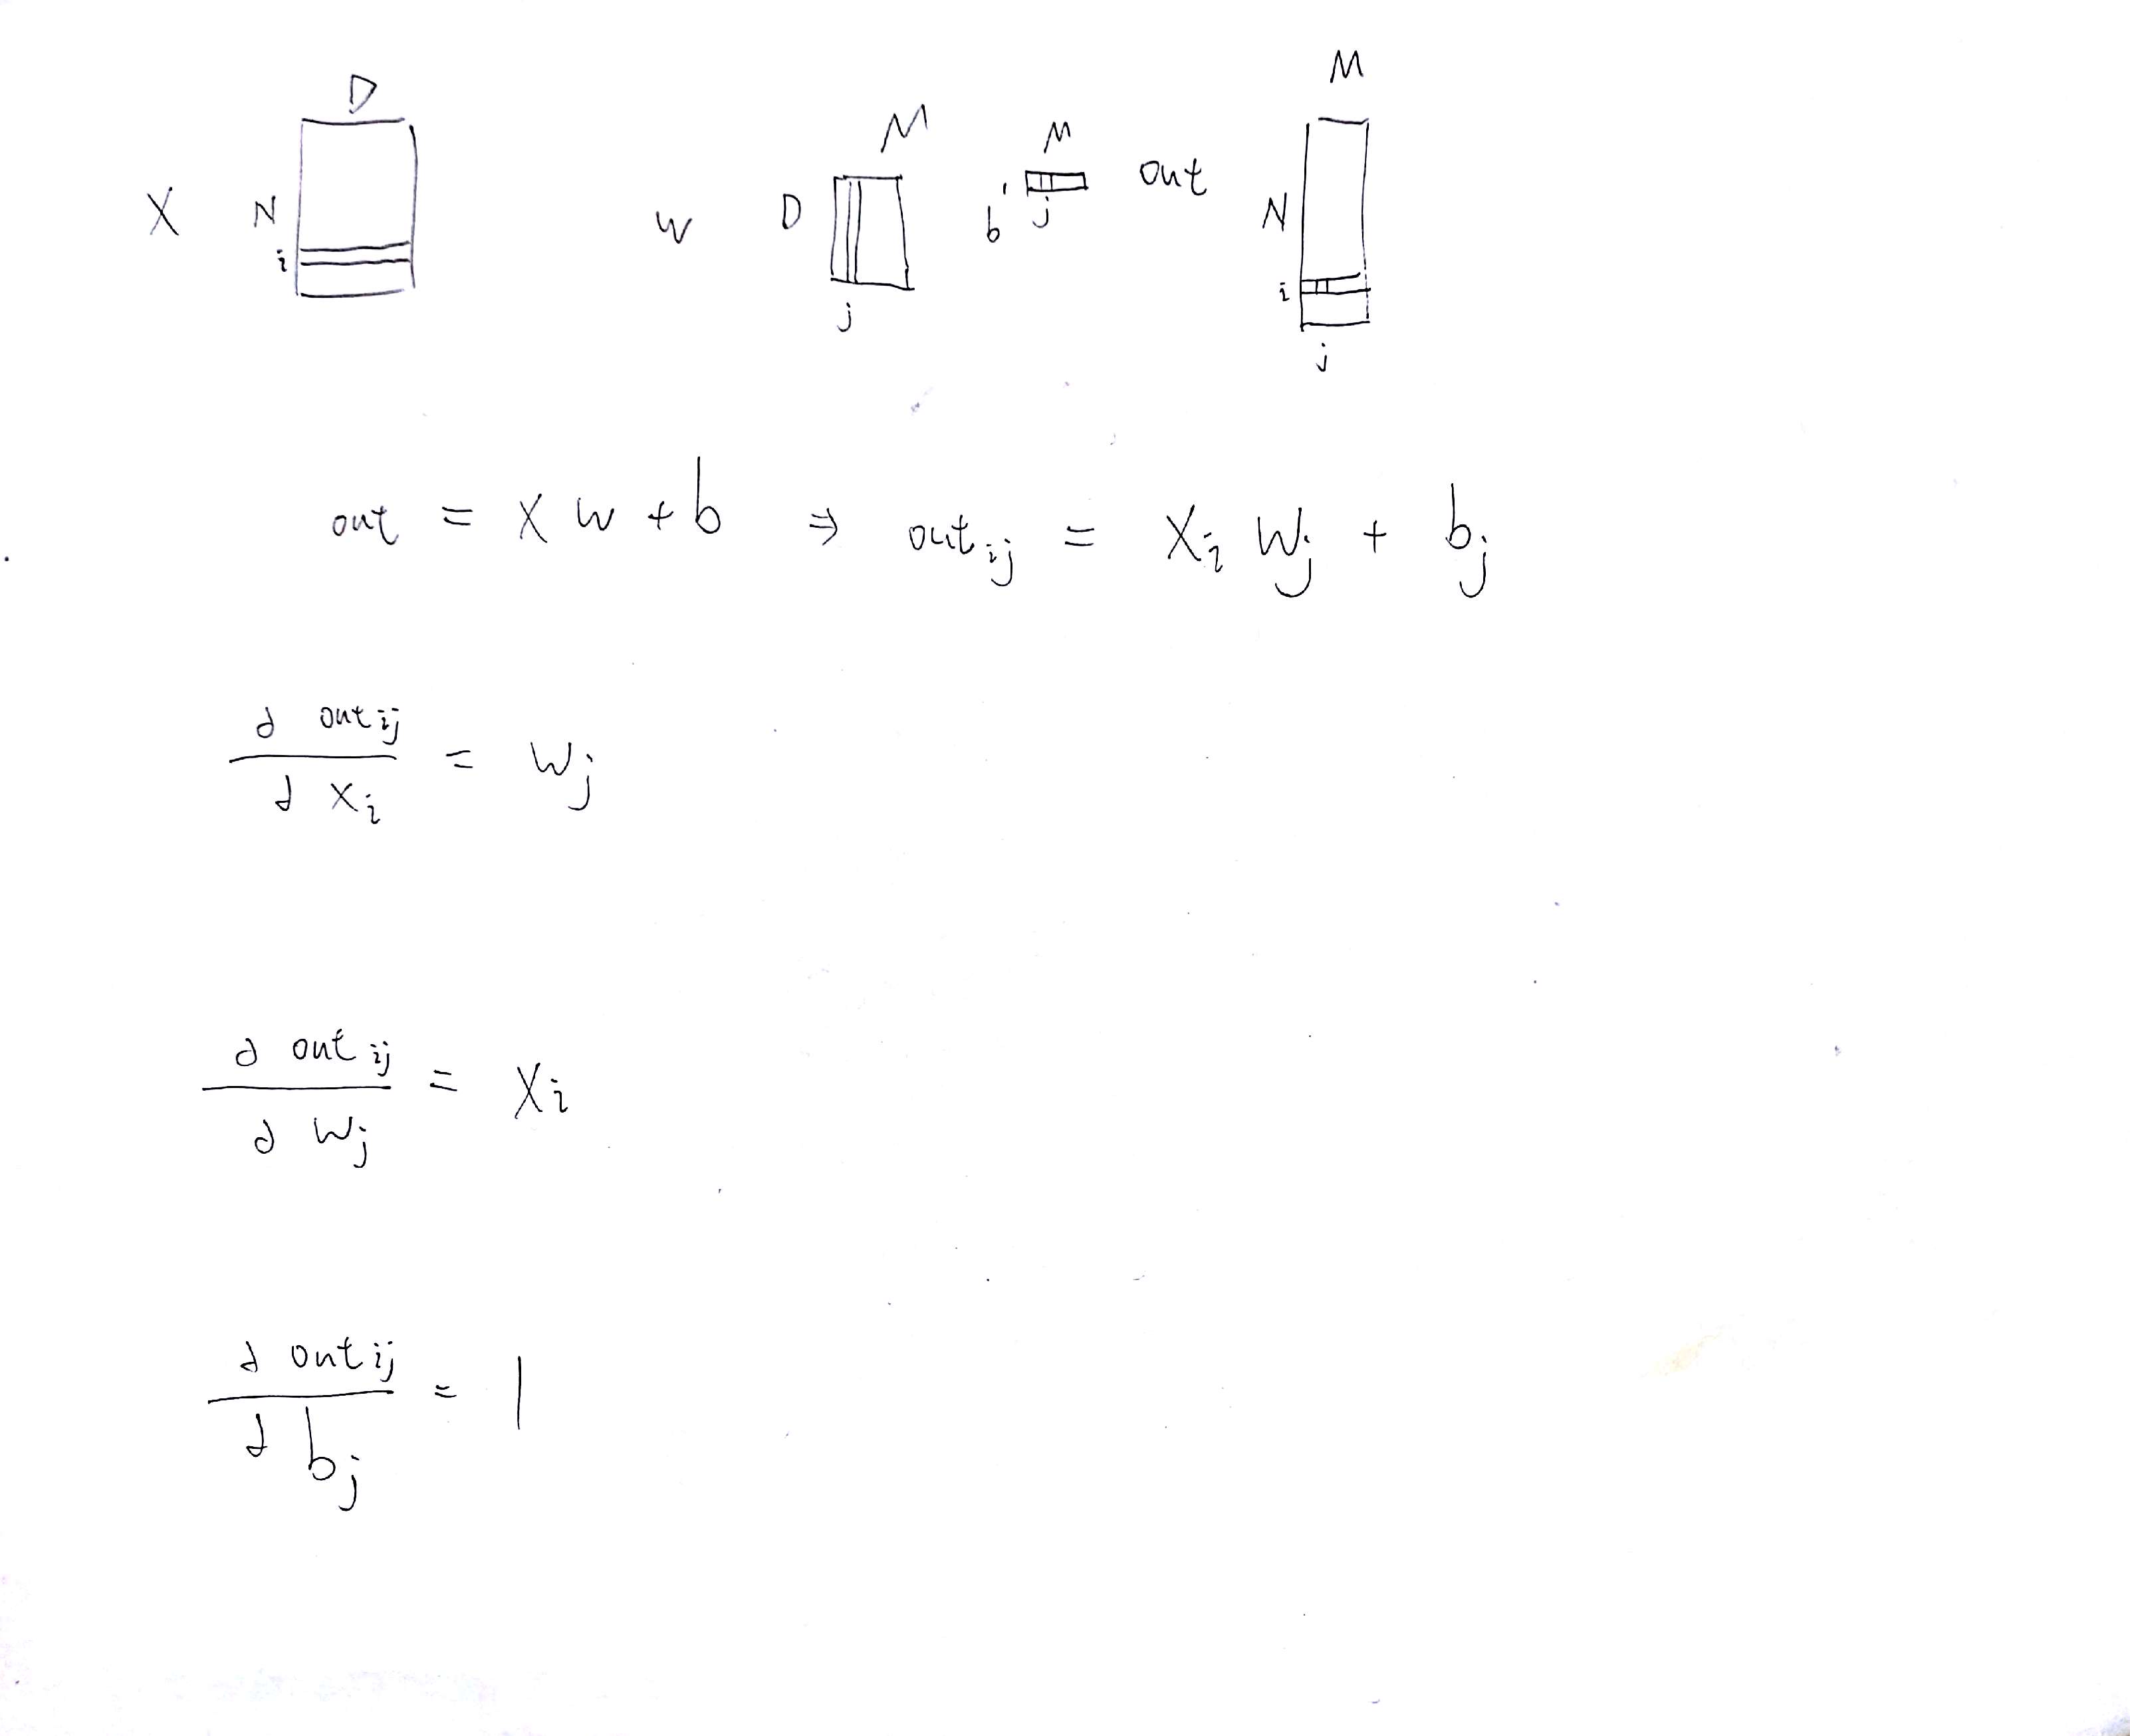 D M M M
X N i W D j b j out N i j
out = X W + b ⇒ out_ij = X_i W_j + b_j
∂ out_ij / ∂ X_i = W_j
∂ out_ij / ∂ W_j = X_i
∂ out_ij / ∂ b_j = 1